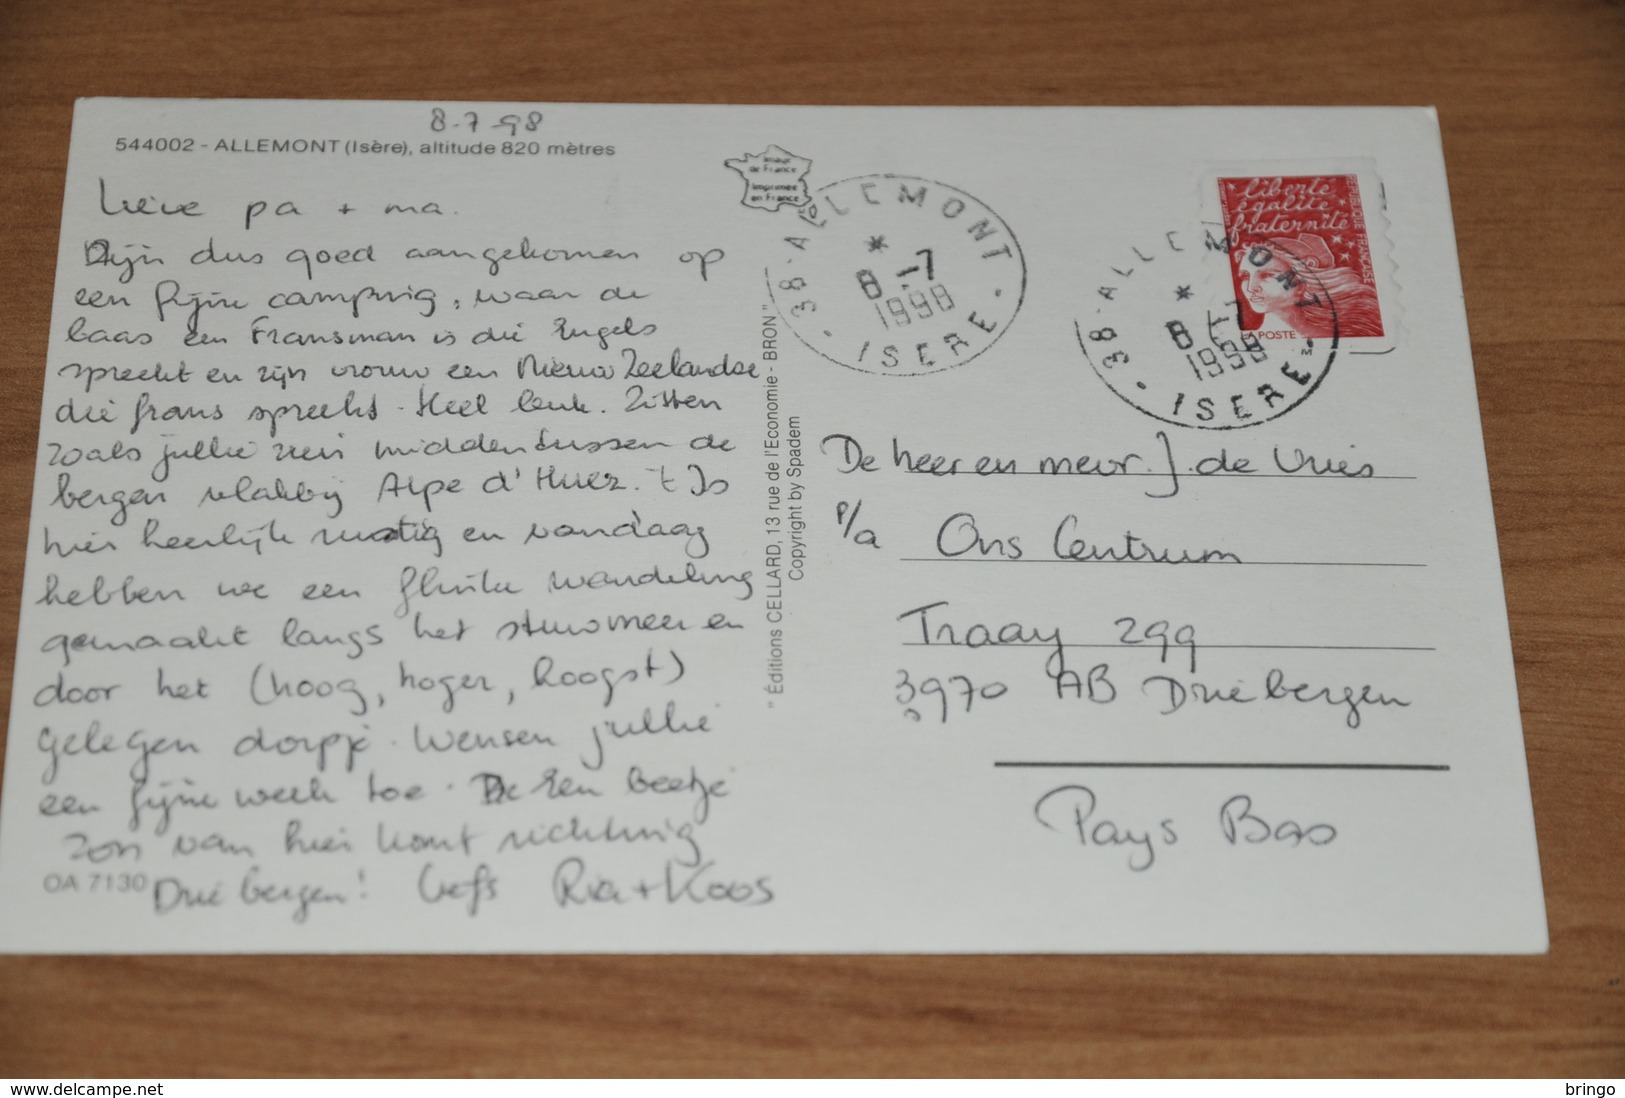 8-7-98
544002 - ALLEMONT (Isère), altitude 820 mètres
Lieve pa + ma.
Zijn dus goed aangekomen op
een fijne camping, waar de
baas een Fransman is die Engels
spreekt en zijn vrouw een Nieuw Zeelandse
die frans spreekt. Heel leuk. Zitten
zoals jullie zien middentussen de
bergen vlakbij Alpe d'Huez. 't Is
hier heerlijk rustig en vandaag
hebben we een flinke wandeling
gemaakt langs het stuwmeer en
door het (hoog, hoger, hoogst)
gelegen dorpje. Wensen jullie
een fijne week toe. Een beetje
zon van hier komt richting
OA 7130 Driebergen! Liefs Ria + Koos
" Éditions CELLARD, 13 rue de l'Economie - BRON "
Copyright by Spadem
de France
imprimée
en France
38 - ALLEMONT
*
8 -7
1998
ISERE
liberté
égalité
fraternité
REPUBLIQUE FRANÇAISE
LA POSTE
38 - ALLEMONT
*
8 -7
1998
ISERE
De heer en mevr. J. de Vries
p/a Ons Centrum
Traay 299
3970 AB Driebergen
Pays Bas
delcampe.net
bringo